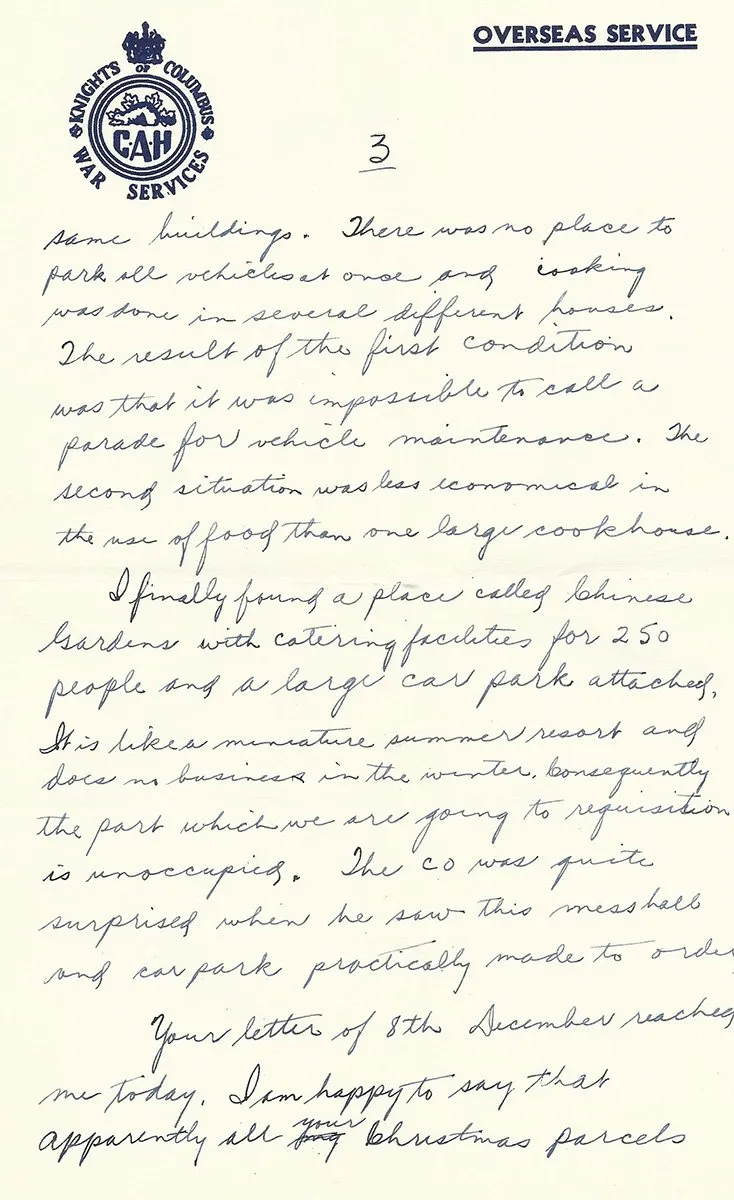 OVERSEAS SERVICE
KNIGHTS OF COLUMBUS
C·A·H
WAR SERVICES
3
same buildings. There was no place to
park all vehicles at once and cooking
was done in several different houses.
The result of the first condition
was that it was impossible to call a
parade for vehicle maintenance. The
second situation was less economical in
the use of food than one large cookhouse.
I finally found a place called Chinese
Gardens with catering facilities for 250
people and a large car park attached.
It is like a miniature summer resort and
does no business in the winter. Consequently
the part which we are going to requisition
is unoccupied. The CO was quite
surprised when he saw this mess hall
and car park practically made to order
Your letter of 8th December reached
me today. I am happy to say that
apparently all your Christmas parcels